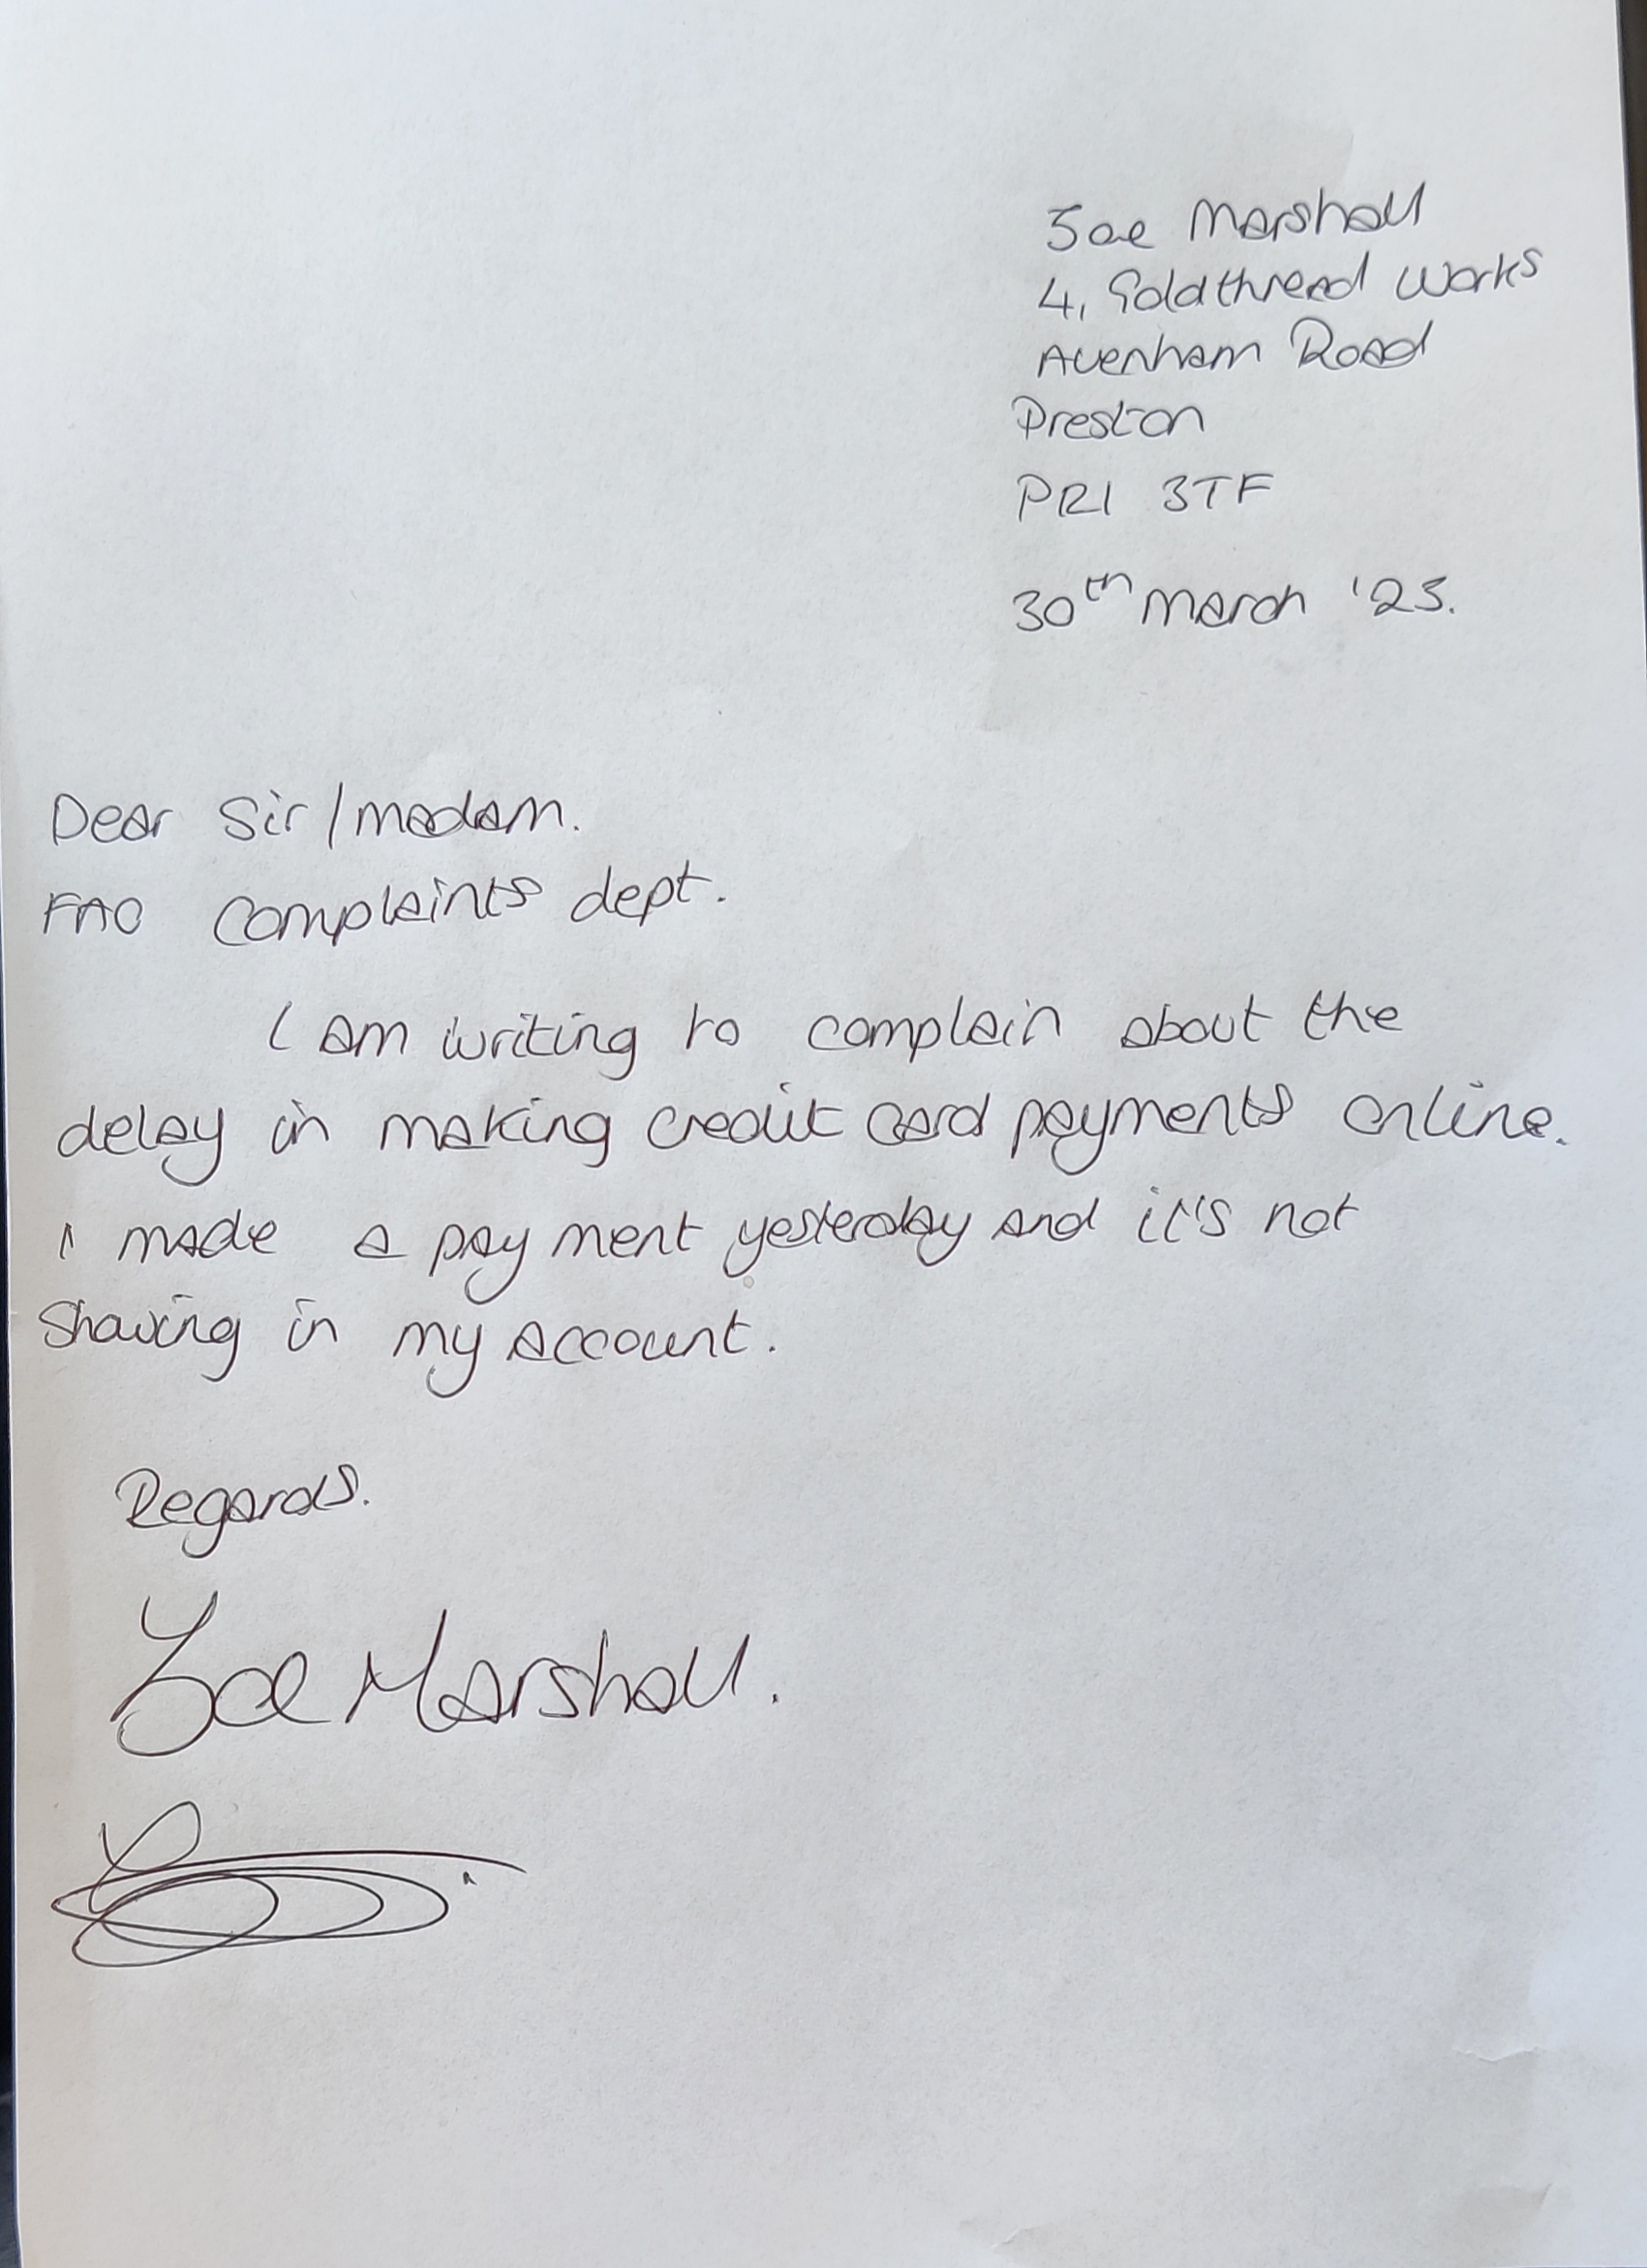 Zoe Marshall
4, Goldthread Works
Avenham Road
Preston
PR1 3TF
30th March '23.
Dear Sir/madam.
FAO Complaints dept.
I am writing to complain about the
delay in making credit card payments online.
I made a payment yesterday and it's not
showing in my account.
Regards.
Zoe Marshall.